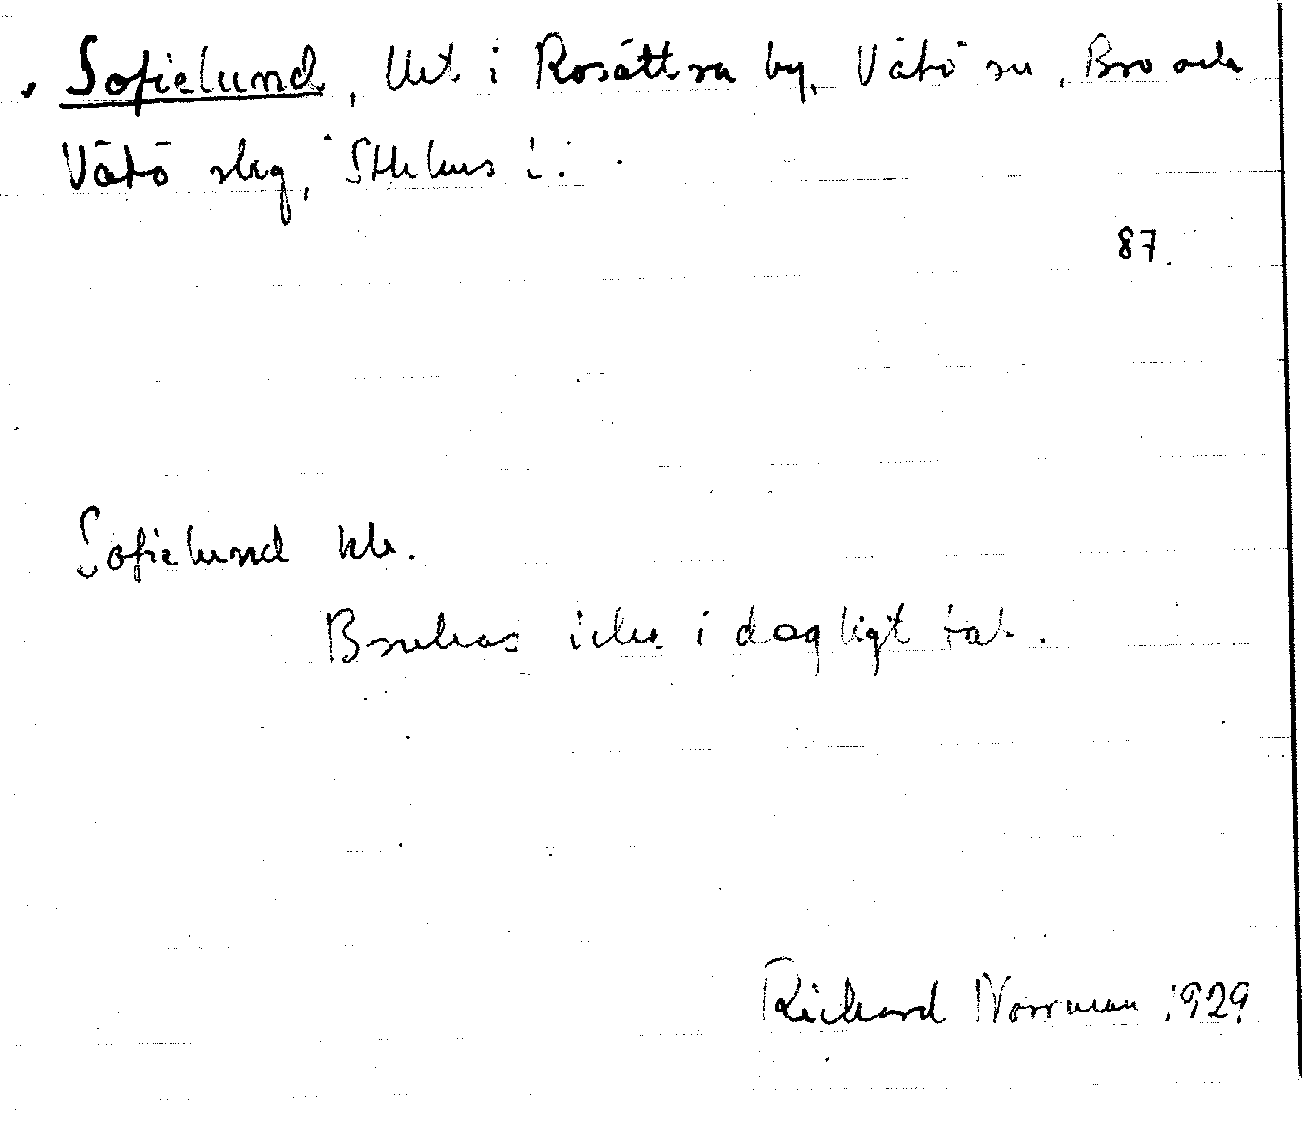 Sofielund, Utt. i Rosättra by, Vätö sn, Bro och
Vätö skg, Sthlms l.
87.
Sofielund
Brukas icke i dagligt tal.
Richard Norrman 1929